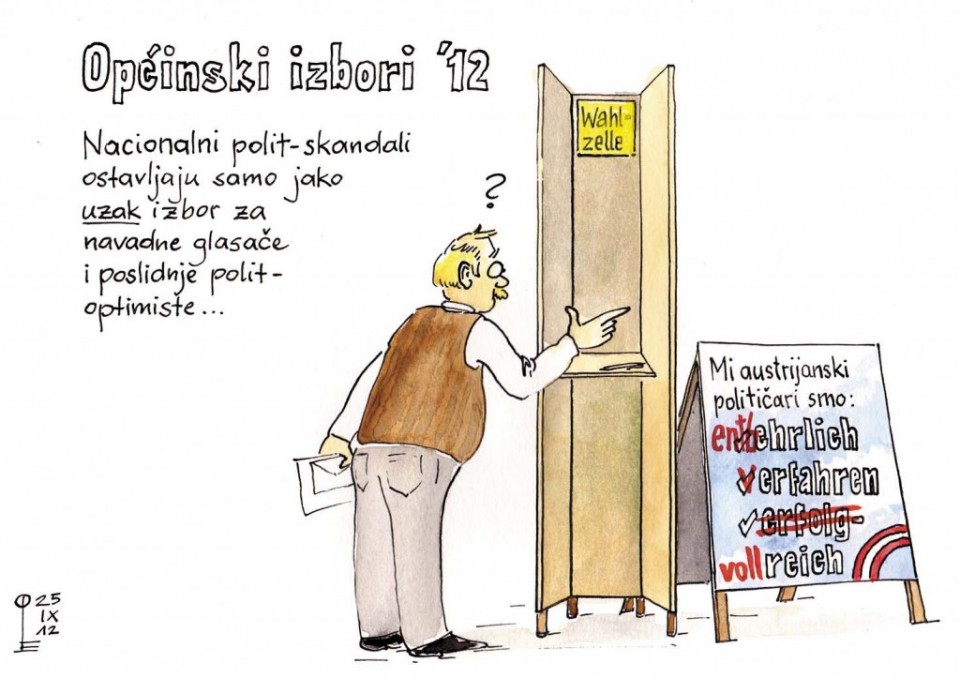 Općinski izbori '12
Nacionalni polit-skandali
ostavljaju samo jako
uzak izbor za
navadne glasače
i poslidnje polit-
optimiste...
?
Wahl-
zelle
Mi austrijanski
političari smo:
entbehrlich
verfahren
erfolg-
vollreich
25
IX
12